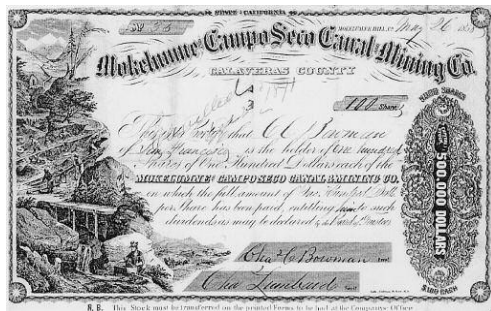 STATE of CALIFORNIA
No 38
MOKELUMNE HILL, May 26
Mokelumne & Campo Seco Canal & Mining Co.
CALAVERAS COUNTY
Cancelled
100 Share
This is to Certify that C C Bowman
of San Francisco is the holder of One hundred
Shares of One Hundred Dollars each of the
MOKELUMNE & CAMPO SECO CANAL & MINING CO.
in which the full amount of One Hundred Dolls
per share has been paid, entitling him to such
dividends as may be declared by the Board of Trustees
Chas C Bowman
Chas Lombard
5000 SHARES
500,000 DOLLARS
$100 EACH
N. B. This Stock must be transferred on the printed Forms to be had at the Companys Office